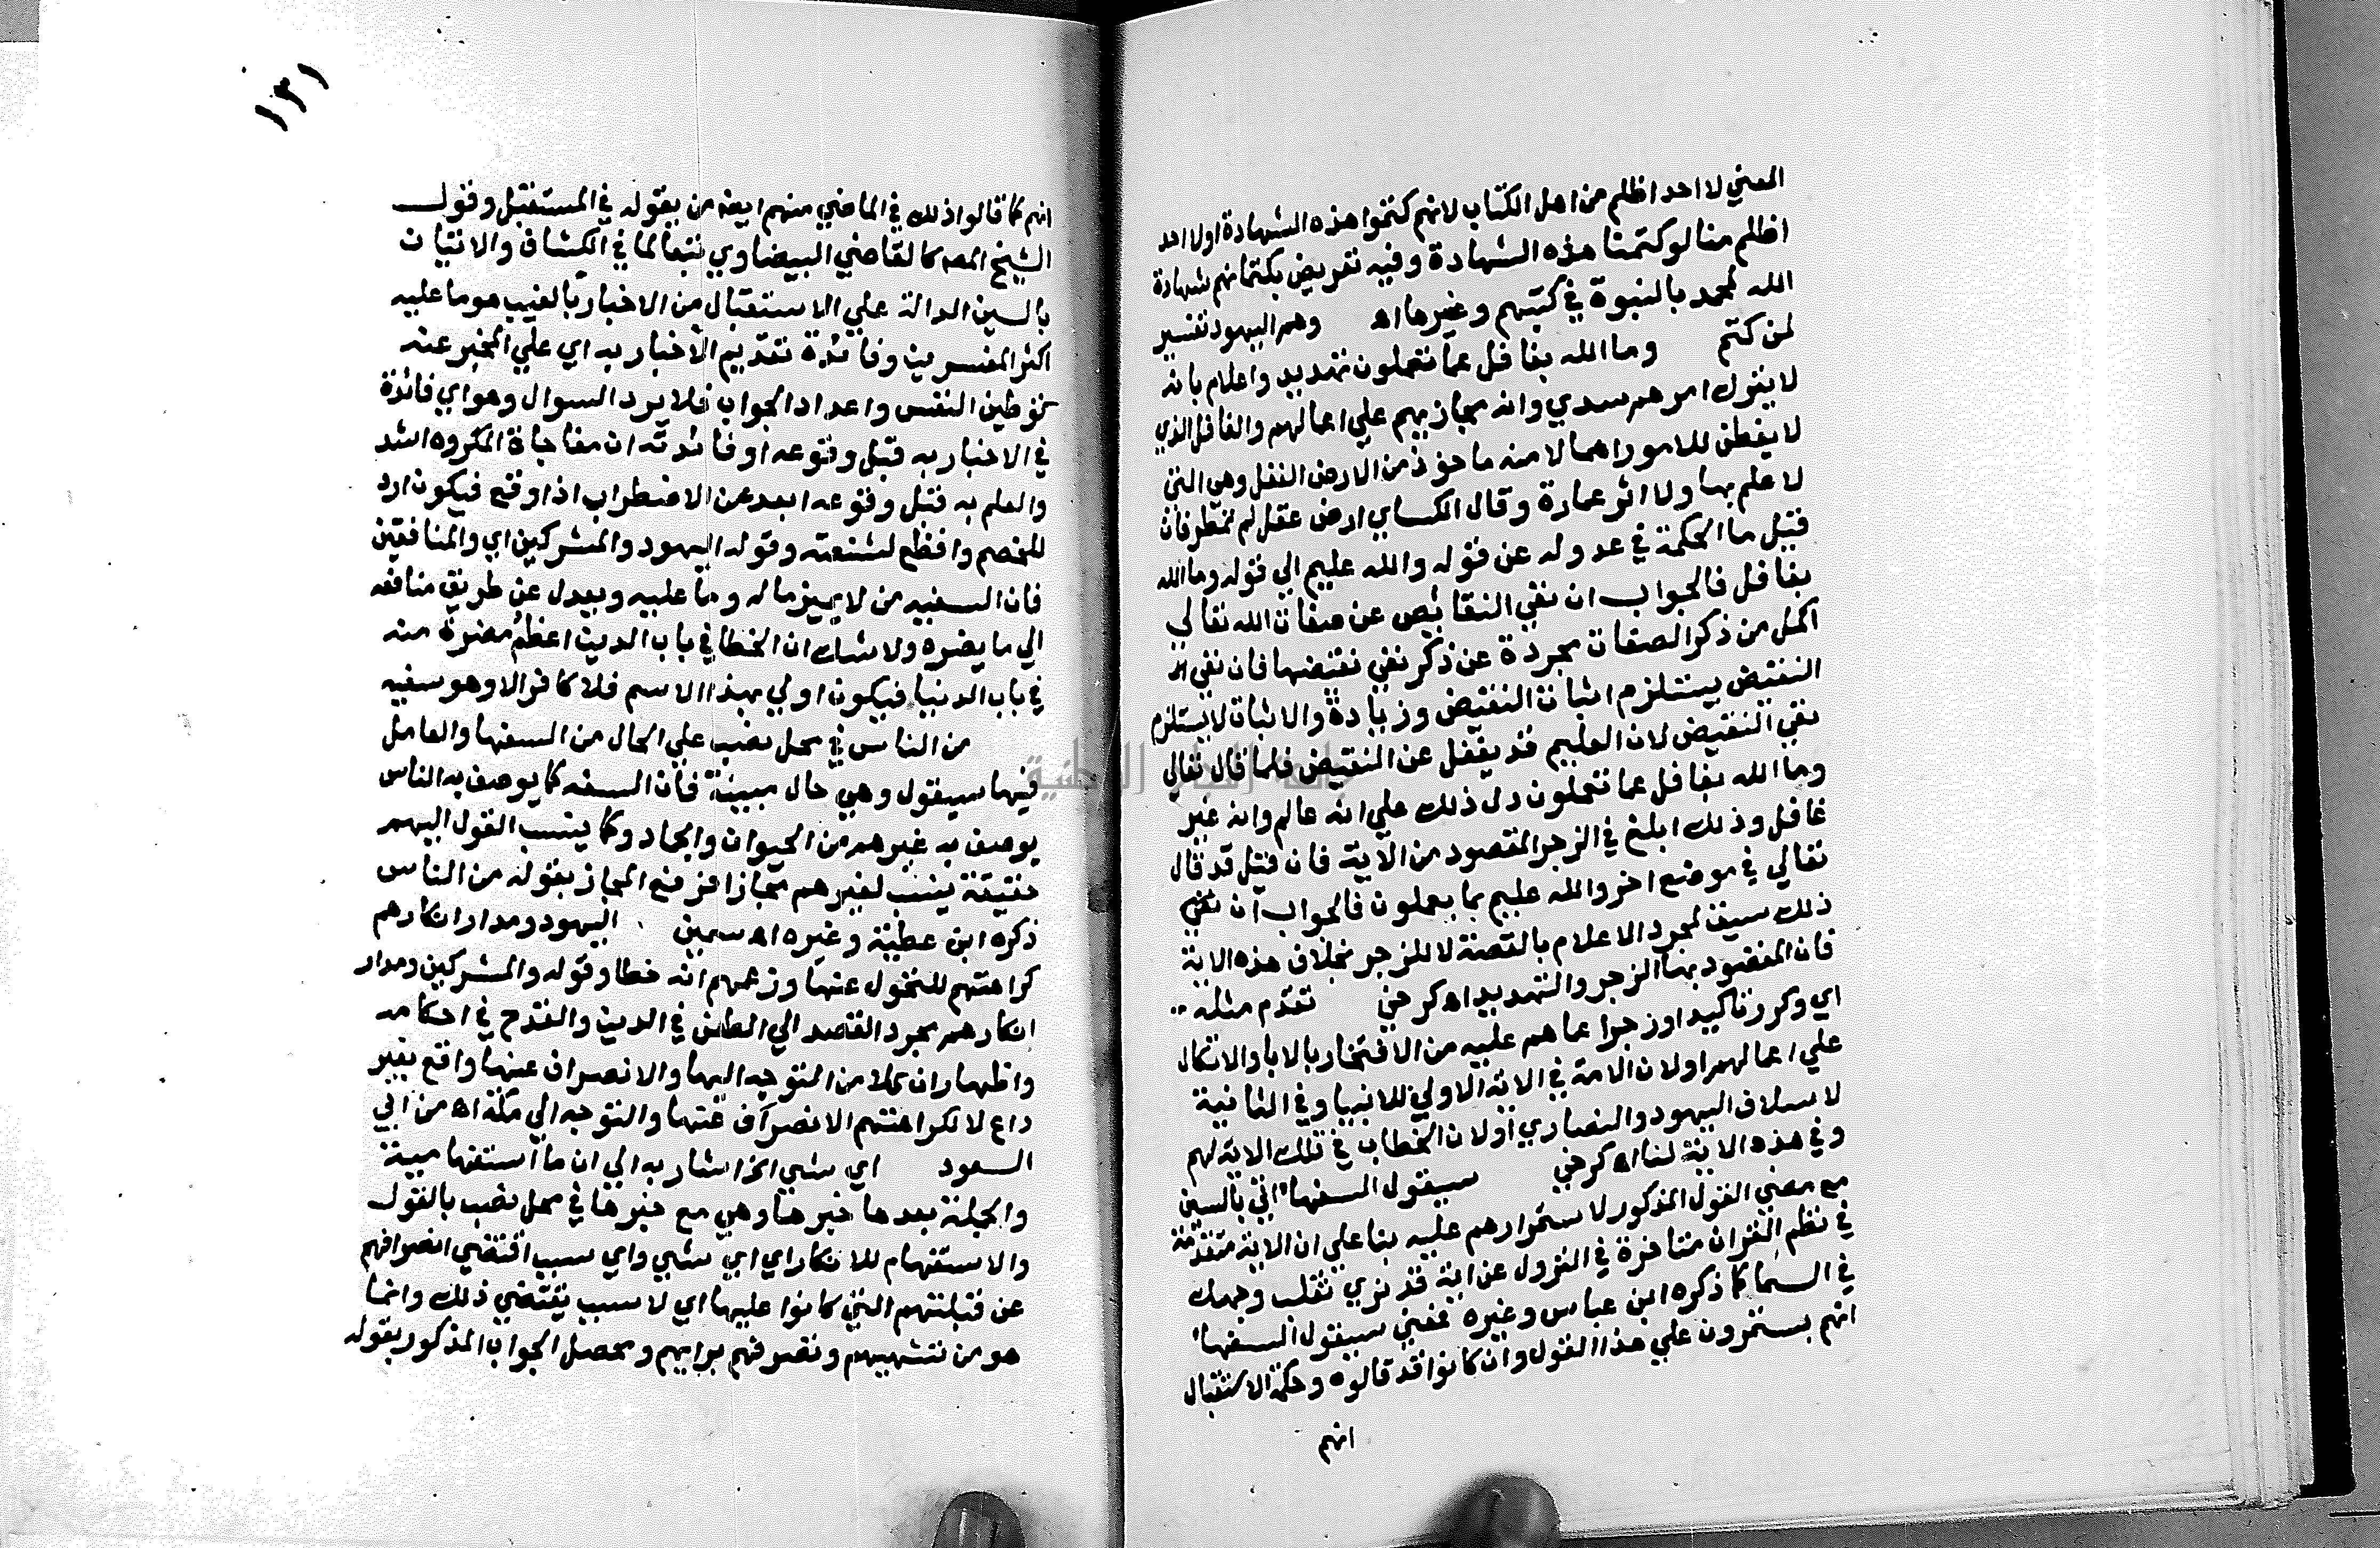 المعني لا احد اظلم من اهل الكتاب لانهم كتموا هذه الشهادة او لا احد
اظلم منا لو كتمنا هذه الشهادة وفيه تعريض بكتمانهم شهادة
الله لمحمد بالنبوة في كتبهم وغيرها اه وهم اليهود تفسير
لمن كتم وما الله بغافل عما تعملون تهديد واعلام بانه
لا يترك امرهم سدي وانه مجازيهم علي اعمالهم والغافل الذي
لا يفطن للامور اهمالا منه ماخوذ من الارض الغفل وهي التي
لا علم بها ولا اثر عمارة وقال الكساي ارض غفل لم تمطر فان
قيل ما الحكمة في عدوله عن قوله والله عليم الي قوله وما الله
بغافل فالجواب ان نفي النقائص عن صفات الله تعالي
اكمل من ذكر الصفات مجردة عن ذكر نفي نقيضها فان نفي
النقيض يستلزم اثبات النقيض وزيادة والاثبات لا يستلزم
نفي النقيض لان العليم قد يغفل عن النقيض فلما قال تعالي
وما الله بغافل عما تعملون دل ذلك علي انه عالم وانه غير
غافل وذلك ابلغ في الزجر المقصود من الاية فان قيل قد قال
تعالي في موضع اخر والله عليم بما يعملون فالجواب ان
ذلك سيق لمجرد الاعلام بالقصة لا للزجر بخلاف هذه الاية
فان المقصود بها الزجر والتهديد اه كرخي تقدم مثله
اي وكرر تاكيدا وزجرا عما هم عليه من الافتخار بالابا والاتكال
علي اعمالهم او لان الامة في الاية الاولي للانبيا وفي الثانية
لاسلاف اليهود والنصاري او لان الخطاب في تلك الاية لهم
وفي هذه الاية لنا اه كرخي سيقول السفها اتي بالسين
مع مضي القول المذكور لاستمرارهم عليه بنا علي ان الاية متقدمة
في نظم القران متاخرة في النزول عن اية قد نري تقلب وجهك
في السما كما ذكره ابن عباس وغيره فمعني سيقول السفها
انهم يستمرون علي هذا القول وان كانوا قد قالوه وحكمة الاستقبال
انهم
١٣١
انهم كما قالوا ذلك في الماضي منهم ايضا من يقوله في المستقبل وقول
الشيخ المص كالقاضي البيضاوي تبعا لما في الكشاف والاتيان
بالسين الدالة علي الاستقبال من الاخبار بالغيب هو ما عليه
اكثر المفسرين وفائدة تقديم الاخبار به اي علي المخبر عنه
توطين النفس واعداد الجواب فلا يرد السوال وهو اي فائدة
في الاخبار به قبل وقوعه او فائدته ان مفاجاة المكروه اشد
والعلم به قبل وقوعه ابعد عن الاضطراب اذا وقع فيكون ارد
للخصم واقطع لشغبه وقوله اليهود والمشركين اي والمنافقين
فان السفيه من لا يميز ماله وما عليه ويعدل عن طريق منافعه
الي ما يضره ولا شك ان الخطا في باب الدين اعظم مضرة منه
في باب الدنيا فيكون اولي بهذا الاسم فلا كافر الا وهو سفيه
من الناس في محل نصب علي الحال من السفها والعامل
فيها سيقول وهي حال مبينة فان السفه كما يوصف به الناس
يوصف به غيرهم من الحيوان والجماد وكما ينسب القول اليهم
حقيقة ينسب لغيرهم مجازا فرفع المجاز بقوله من الناس
ذكره ابن عطية وغيره اه سمين اليهود ومدار انكارهم
كراهتهم للتحول عنها وزعمهم انه خطا وقوله والمشركين ومدار
انكارهم مجرد القصد الي الطعن في الدين والقدح في احكامه
واظهار ان كلا من التوجه اليها والانصراف عنها واقع بغير
داع لا لكراهتهم الانصراف عنها والتوجه الي مكة اه من ابي
السعود اي شي اخر اشار به الي ان ما استفهامية
والجملة بعدها خبرها وهي مع خبرها في محل نصب بالقول
والاستفهام للانكار اي اي شي واي سبب اقتضي انصرافهم
عن قبلتهم التي كانوا عليها اي لا سبب يقتضي ذلك وانما
هو من تشهيهم وتصرفهم برايهم ومحصل الجواب المذكور بقوله